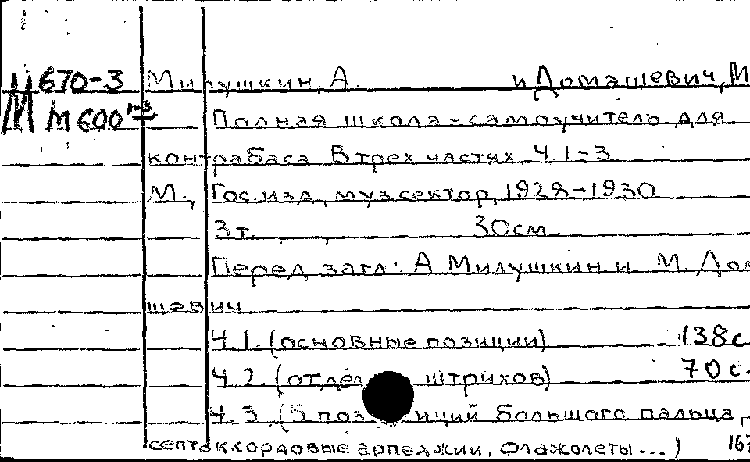 М670-3 Милушкин, А. и Домашевич, М
М m600 1-3 Полная школа-самоучитель для
контрабаса В трех частях Ч.1-3
М., Гос. изд., муз. сектор, 1928-1930
3 т. 30 см
Перед загл: А Милушкин и М. До
шевич
Ч.1. (основные позиции) 138 с
Ч.2. (отдел штрихов) 70 с.
Ч.3. (5 поз иций большого пальца,
септаккордовые арпеджии, флажолеты...) 167